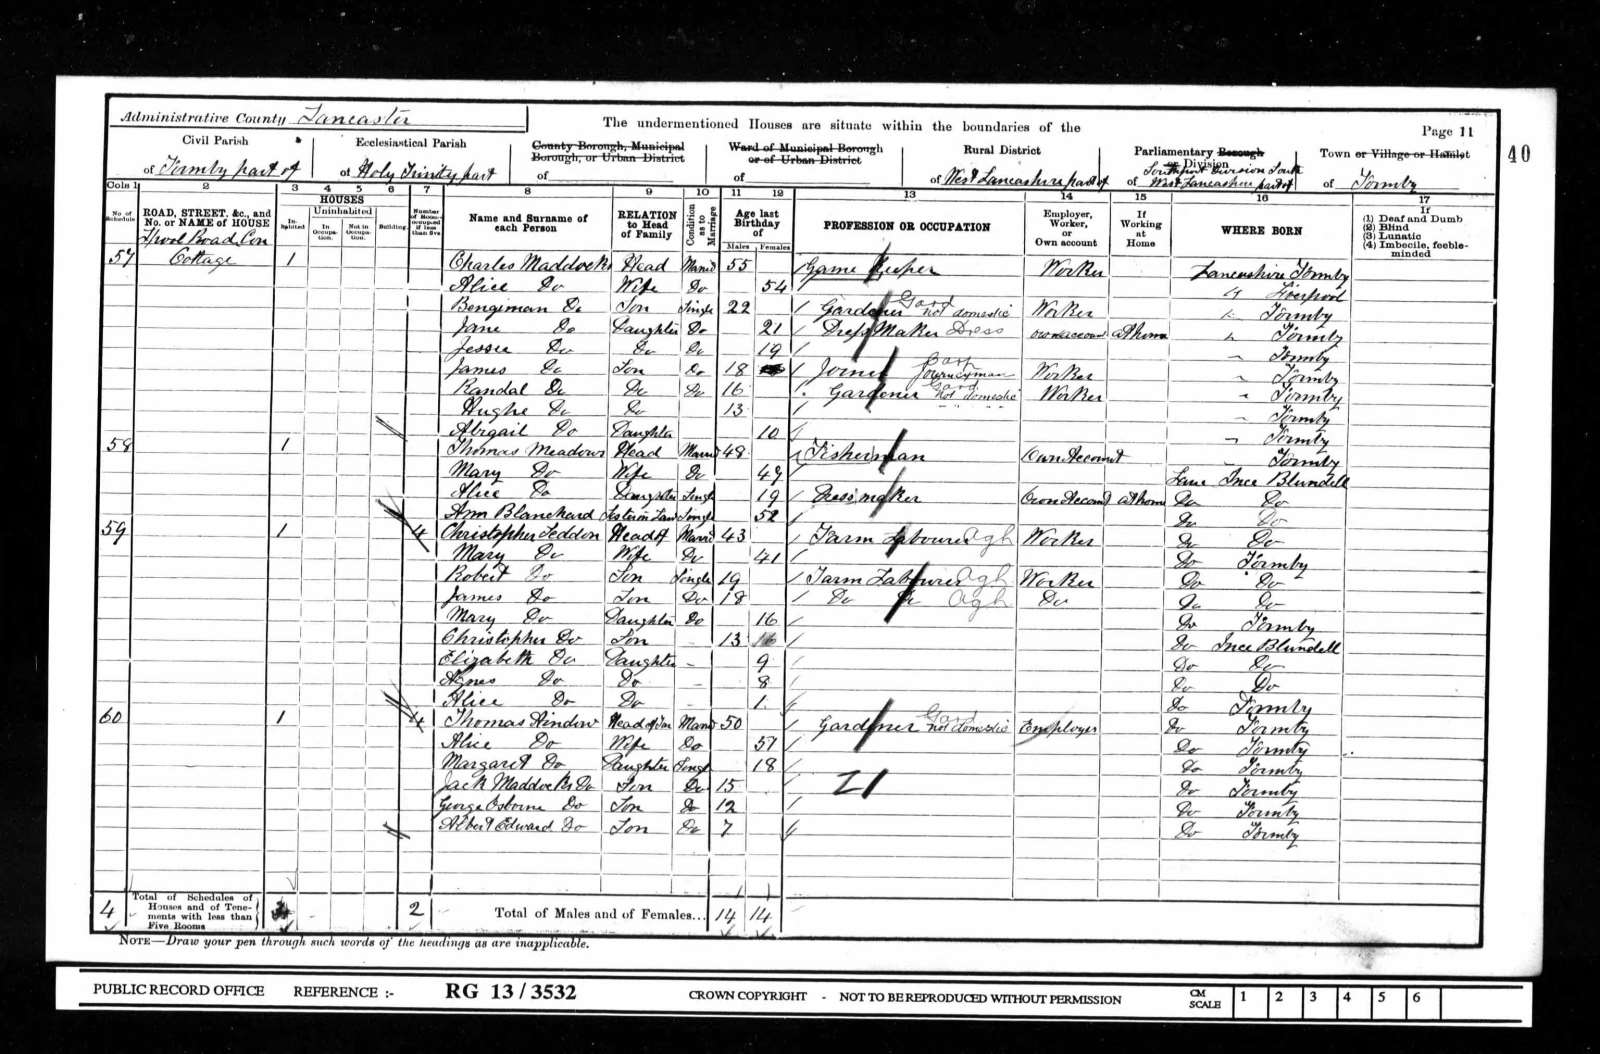 Administrative County Lancaster
The undermentioned Houses are situate within the boundaries of the
Page 11
40
Civil Parish
of Formby part of
Ecclesiastical Parish
of Holy Trinity part
County Borough, Municipal Borough, or Urban District
of
Ward of Municipal Borough or of Urban District
of
Rural District
of West Lancashire part of
Parliamentary Borough or Division
of Southport Division South West Lancashire part of
Town or Village or Hamlet
of Formby
Cols 1 2 3 4 5 6 7 8 9 10 11 12 13 14 15 16 17
No. of Schedule
ROAD, STREET, &c., and No. or NAME of HOUSE
HOUSES
Inhabited
Uninhabited
In Occupation.
Not in Occupation.
Building.
Number of Rooms occupied if less than five
Name and Surname of each Person
RELATION to Head of Family
Condition as to Marriage
Age last Birthday of
Males Females
PROFESSION OR OCCUPATION
Employer, Worker, or Own account
If Working at Home
WHERE BORN
If
(1) Deaf and Dumb
(2) Blind
(3) Lunatic
(4) Imbecile, feeble-minded
57 Cottage 1 Charles Maddocks Head Marrd 55 Game Keeper Worker Lancashire Formby
Alice Do Wife Do 54 Liverpool
Bengiman Do Son Single 22 Gardener Gard not domestic Worker Formby
Jane Do Daughter Do 21 Dress Maker Dress own account at home Formby
Jessie Do Do Do 19 Formby
James Do Son Do 18 Joiner Journeyman Worker Formby
Randal Do Do Do 16 Gardener Gard not domestic Worker Formby
Hughe Do Do 13 Formby
Abigail Do Daughter 10 Formby
58 1 Thomas Meadows Head Marrd 48 Fisherman Own Account Formby
Mary Do Wife Do 47 Lanc Ince Blundell
Alice Do Daughter Single 19 Dressmaker Own Account at home Do Do
Ann Blanchard Sister in Law Single 52 Do Do
59 1 4 Christopher Seddon Head Marrd 43 Farm Labourer Agh Worker Do Do
Mary Do Wife Do 41 Do Formby
Robert Do Son Single 19 Farm Labourer Agh Worker Do Do
James Do Son Do 18 Do Do Agh Do Do Do
Mary Do Daughter Do 16 Do Formby
Christopher Do Son - 13 16 Do Ince Blundell
Elizabeth Do Daughter - 9 Do Do
Agnes Do Do - 8 Do Do
Alice Do Do - 1 Do Formby
60 1 4 Thomas Rindow Head of Fam Marrd 50 Gardener Gard not domestic Employer Do Formby
Alice Do Wife Do 51 Do Formby
Margaret Do Daughter Single 18 Do Formby
Jack Maddocks Do Son Do 15 Do Formby
George Osborne Do Son Do 12 Do Formby
Albert Edward Do Son Do 7 Do Formby
4 Total of Schedules of Houses and of Tenements with less than Five Rooms 2 Total of Males and of Females... 14 14
NOTE—Draw your pen through such words of the headings as are inapplicable.
PUBLIC RECORD OFFICE REFERENCE :- RG 13/3532 CROWN COPYRIGHT - NOT TO BE REPRODUCED WITHOUT PERMISSION CM SCALE 1 2 3 4 5 6